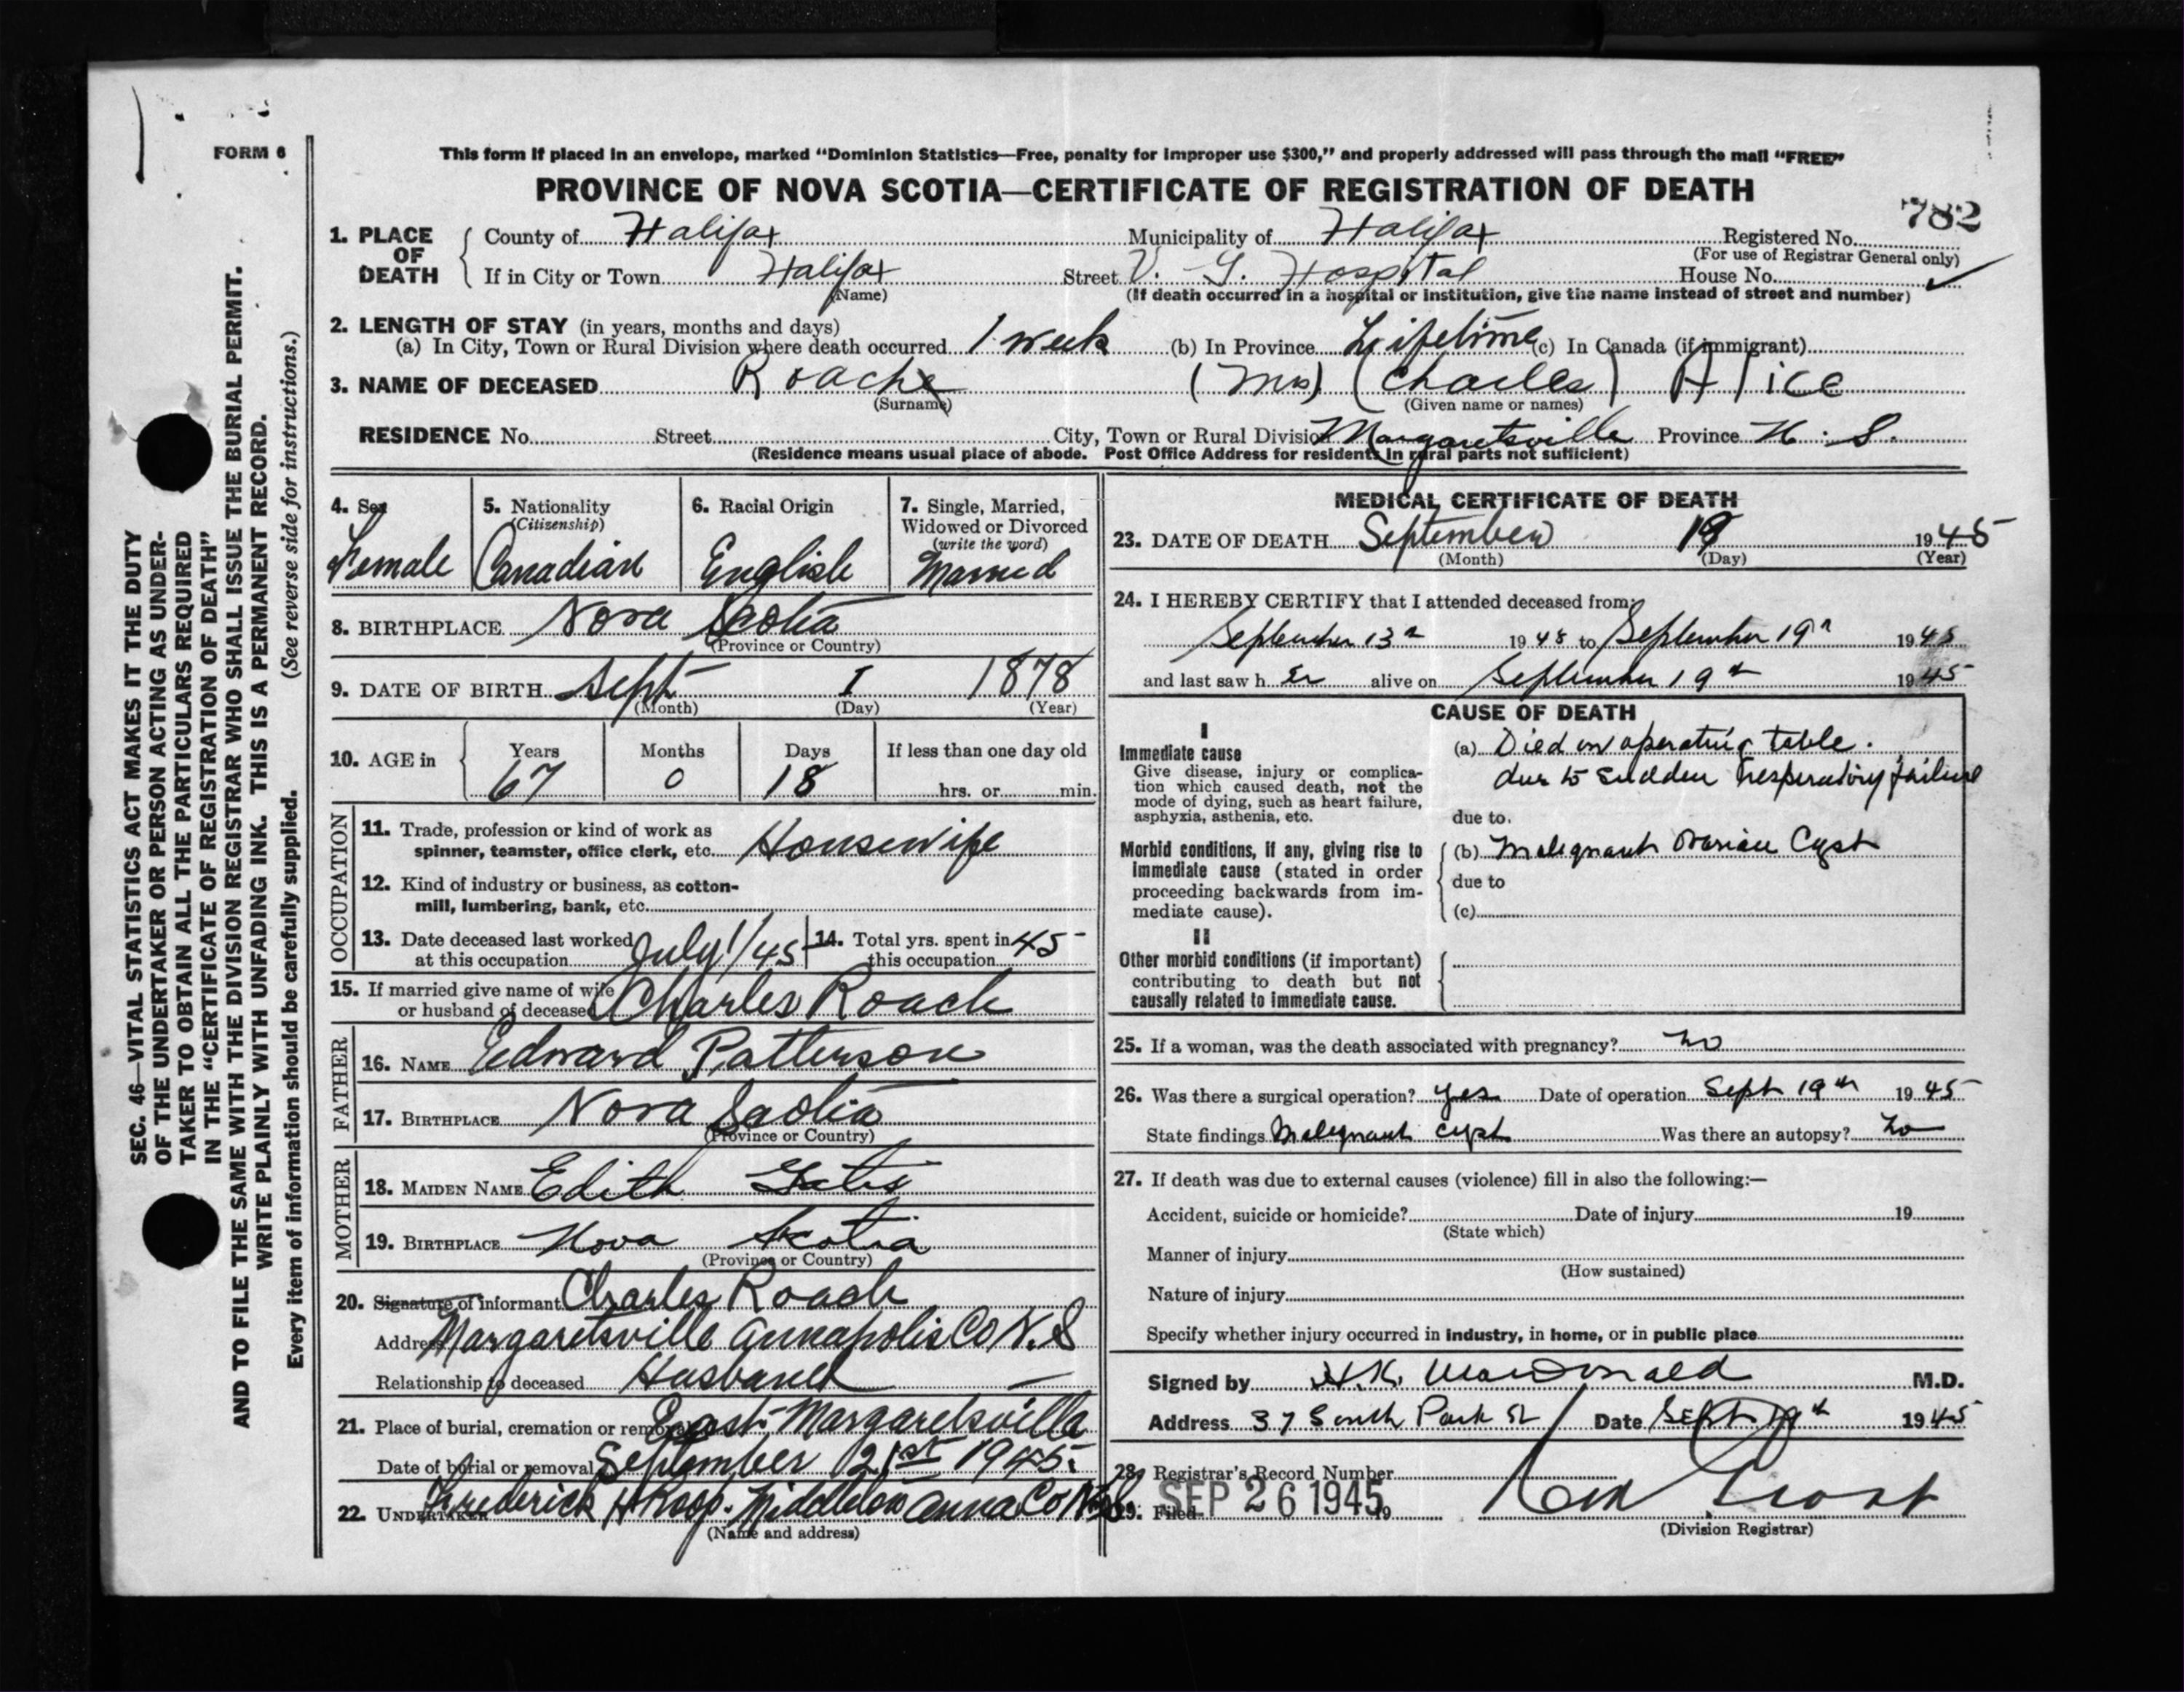 FORM 6
This form if placed in an envelope, marked "Dominion Statistics—Free, penalty for improper use $300," and properly addressed will pass through the mail "FREE"
PROVINCE OF NOVA SCOTIA—CERTIFICATE OF REGISTRATION OF DEATH
782
1. PLACE OF DEATH County of Halifax Municipality of Halifax Registered No.
(For use of Registrar General only)
If in City or Town Halifax Street V. G. Hospital House No.
(Name) (If death occurred in a hospital or institution, give the name instead of street and number)
2. LENGTH OF STAY (in years, months and days)
(a) In City, Town or Rural Division where death occurred 1 week (b) In Province Lifetime (c) In Canada (if immigrant)
3. NAME OF DECEASED Roache (Mrs) (Charles) Alice
(Surname) (Given name or names)
RESIDENCE No. Street City, Town or Rural Division Margaretsville Province N. S.
(Residence means usual place of abode. Post Office Address for residents in rural parts not sufficient)
SEC. 46—VITAL STATISTICS ACT MAKES IT THE DUTY
OF THE UNDERTAKER OR PERSON ACTING AS UNDER-
TAKER TO OBTAIN ALL THE PARTICULARS REQUIRED
IN THE "CERTIFICATE OF REGISTRATION OF DEATH"
AND TO FILE THE SAME WITH THE DIVISION REGISTRAR WHO SHALL ISSUE THE BURIAL PERMIT.
WRITE PLAINLY WITH UNFADING INK. THIS IS A PERMANENT RECORD.
Every item of information should be carefully supplied. (See reverse side for instructions.)
4. Sex 5. Nationality 6. Racial Origin 7. Single, Married,
(Citizenship) Widowed or Divorced
(write the word)
Female Canadian English Married
8. BIRTHPLACE Nova Scotia
(Province or Country)
9. DATE OF BIRTH Sept 1 1878
(Month) (Day) (Year)
10. AGE in Years Months Days If less than one day old
67 0 18 hrs. or min.
OCCUPATION
11. Trade, profession or kind of work as
spinner, teamster, office clerk, etc. Housewife
12. Kind of industry or business, as cotton-
mill, lumbering, bank, etc.
13. Date deceased last worked at this occupation July 1/45 14. Total yrs. spent in this occupation 45
15. If married give name of wife
or husband of deceased Charles Roach
FATHER
16. NAME Edward Patterson
17. BIRTHPLACE Nova Scotia
(Province or Country)
MOTHER
18. MAIDEN NAME Edith Gates
19. BIRTHPLACE Nova Scotia
(Province or Country)
20. Signature of informant Charles Roach
Address Margaretsville Annapolis Co N.S
Relationship to deceased Husband
21. Place of burial, cremation or removal East Margaretsville
Date of burial or removal September 21st 1945.
22. UNDERTAKER Frederick H Roop. Middleton Anna Co N.S
(Name and address)
MEDICAL CERTIFICATE OF DEATH
23. DATE OF DEATH September 19 1945
(Month) (Day) (Year)
24. I HEREBY CERTIFY that I attended deceased from:
September 13th 1945 to September 19th 1945
and last saw h er alive on September 19th 1945
CAUSE OF DEATH
I
Immediate cause
Give disease, injury or complica-
tion which caused death, not the
mode of dying, such as heart failure,
asphyxia, asthenia, etc.
(a) Died on operating table.
due to sudden respiratory failure
due to.
Morbid conditions, if any, giving rise to
immediate cause (stated in order
proceeding backwards from im-
mediate cause).
(b) Malignant Ovarian Cyst
due to
(c)
II
Other morbid conditions (if important)
contributing to death but not
causally related to immediate cause.
25. If a woman, was the death associated with pregnancy? no
26. Was there a surgical operation? yes Date of operation Sept 19th 1945
State findings Malignant cyst Was there an autopsy? no
27. If death was due to external causes (violence) fill in also the following:—
Accident, suicide or homicide? Date of injury 19
(State which)
Manner of injury
(How sustained)
Nature of injury
Specify whether injury occurred in industry, in home, or in public place
Signed by H.K. MacDonald M.D.
Address 37 South Park St Date Sept 19th 1945
28. Registrar's Record Number
29. Filed SEP 26 1945 19
(Division Registrar)